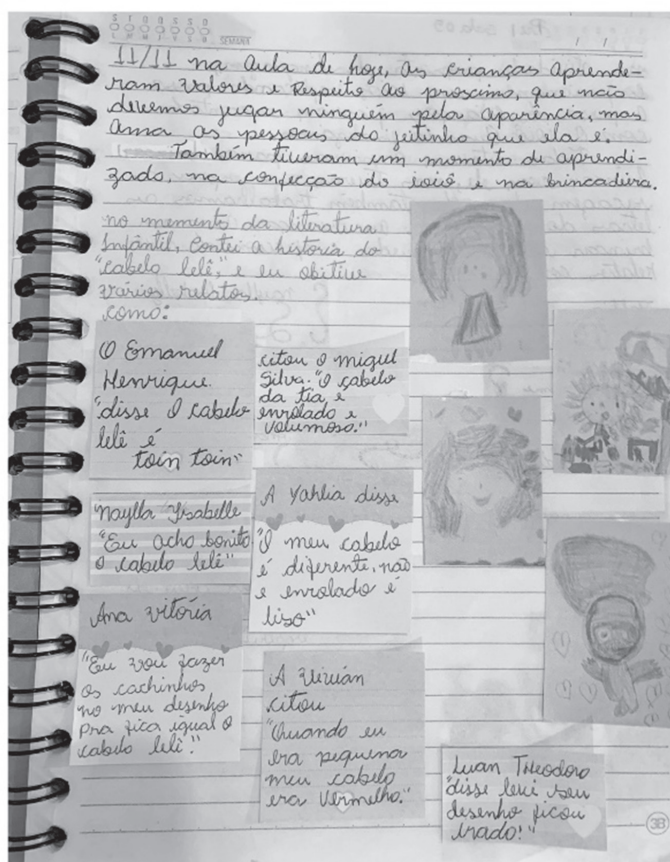 SEMANA
11/11 na aula de hoje, as crianças aprende-
ram valores e respeito ao proscimo, que não
devemos jugar ninguém pela aparência, mas
ama as pessoas do jeitinho que ela é.
Também tiveram um momento de aprendi-
zado, na confecção do ioiô e na brincadeira.
no memento da literatura
Infântil, contei a historia do
"cabelo lelê", e eu obitive
vários relatos.
como:
O Emanuel
Henrique.
"disse O cabelo
lelê é
toin toin"
citou O miguel
Silva: "O cabelo
da tia, é
enrolado e
volumoso."
naylla Ysabelle
"Eu acho bonito
o cabelo lelê"
A Yahlia disse
"O meu cabelo
é diferente, não
e enrolado é
liso"
Ana Vitória
"Eu vou fazer
os cachinhos
no meu desenho
pra fica igual o
cabelo lelê!"
A Vivián
citou
"Quando eu
era pequena
meu cabelo
era vermelho."
Luan Theodoro
"disse
desenho ficou
irado!"
38